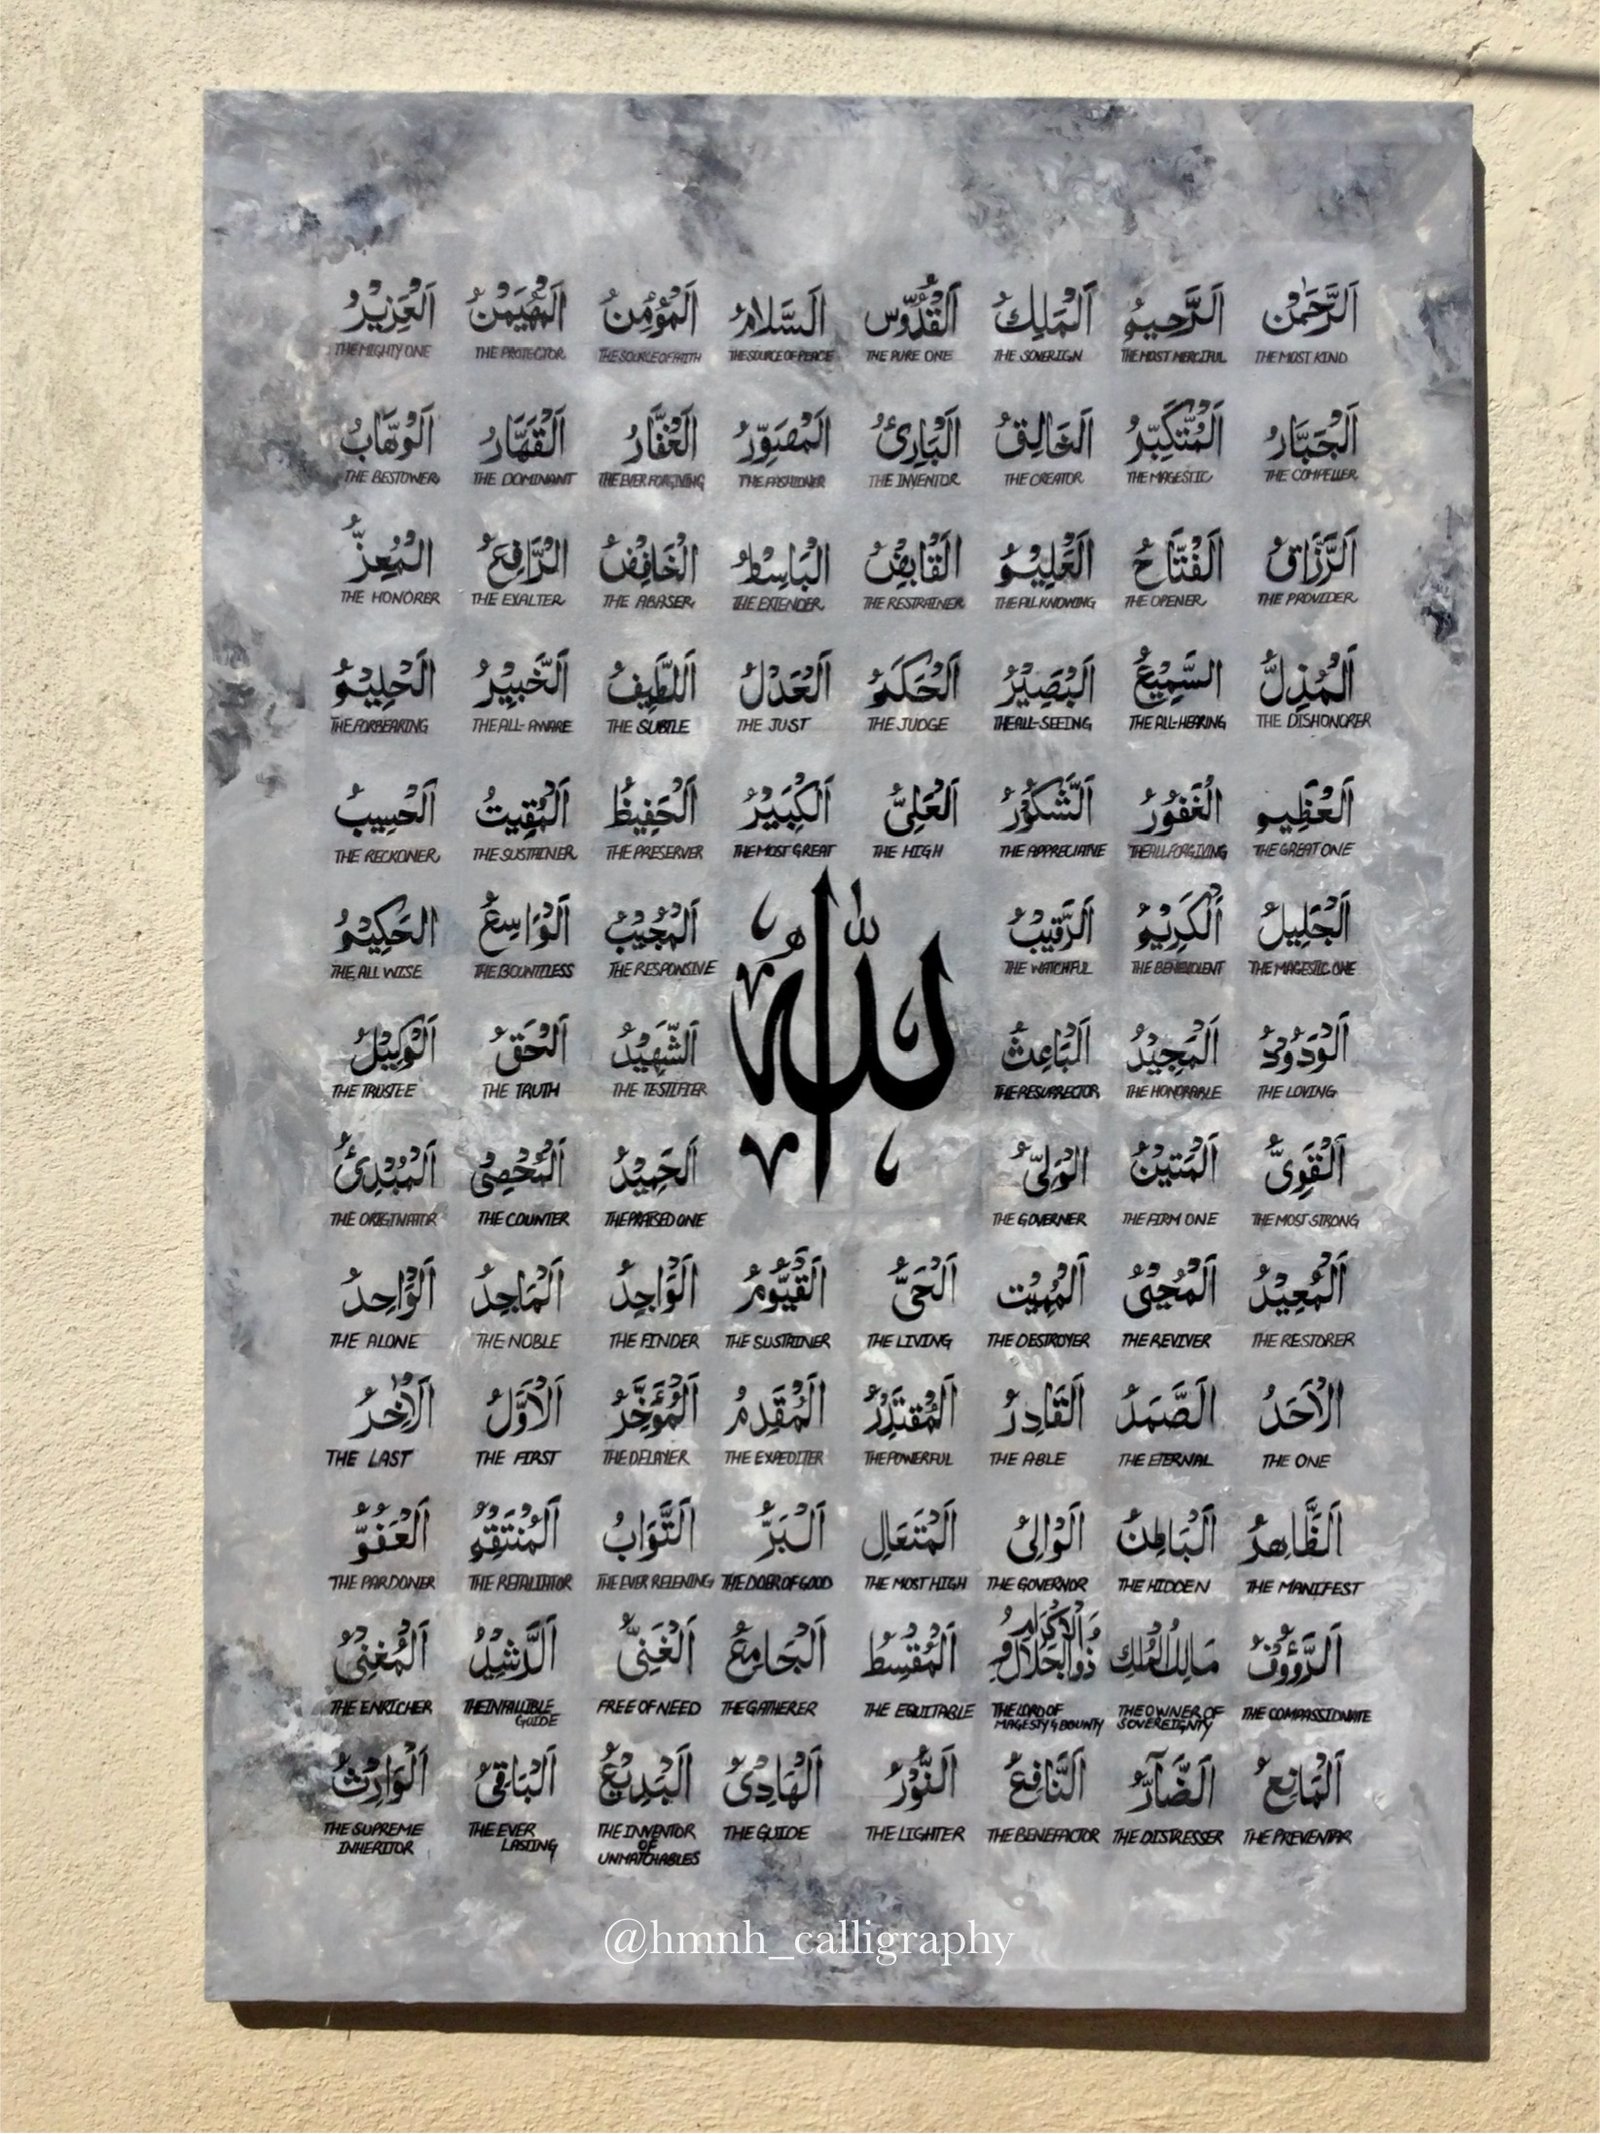 اَلرَّحْمٰنُ
THE MOST KIND
اَلرَّحِيمُ
THE MOST MERCIFUL
اَلْمَلِكُ
THE SOVERIGN
اَلْقُدُّوْسُ
THE PURE ONE
اَلسَّلَامُ
THE SOURCE OF PEACE
اَلْمُؤْمِنُ
THE SOURCE OF FAITH
اَلْمُهَيْمِنُ
THE PROTECTOR
اَلْعَزِيْزُ
THE MIGHTY ONE
اَلْجَبَّارُ
THE COMPELLER
اَلْمُتَكَبِّرُ
THE MAGESTIC
اَلْخَالِقُ
THE CREATOR
اَلْبَارِئُ
THE INVENTOR
اَلْمُصَوِّرُ
THE FASHIONER
اَلْغَفَّارُ
THE EVER FORGIVING
اَلْقَهَّارُ
THE DOMINANT
اَلْوَهَّابُ
THE BESTOWER
اَلرَّزَّاقُ
THE PROVIDER
اَلْفَتَّاحُ
THE OPENER
اَلْعَلِيْمُ
THE ALL KNOWING
اَلْقَابِضُ
THE RESTRAINER
اَلْبَاسِطُ
THE EXTENDER
اَلْخَافِضُ
THE ABASER
اَلرَّافِعُ
THE EXALTER
اَلْمُعِزُّ
THE HONORER
اَلْمُذِلُّ
THE DISHONORER
اَلسَّمِيْعُ
THE ALL-HEARING
اَلْبَصِيْرُ
THE ALL-SEEING
اَلْحَكَمُ
THE JUDGE
اَلْعَدْلُ
THE JUST
اَللَّطِيفُ
THE SUBTLE
اَلْخَبِيْرُ
THE ALL-AWARE
اَلْحَلِيْمُ
THE FORBEARING
اَلْعَظِيمُ
THE GREAT ONE
اَلْغَفُوْرُ
THE ALL FORGIVING
اَلشَّكُوْرُ
THE APPRECIATIVE
اَلْعَلِىُّ
THE HIGH
اَلْكَبِيْرُ
THE MOST GREAT
اَلْحَفِيظُ
THE PRESERVER
اَلْمُقِيتُ
THE SUSTAINER
اَلْحَسِيبُ
THE RECKONER
اَلْجَلِيلُ
THE MAGESTIC ONE
اَلْكَرِيْمُ
THE BENEVOLENT
اَلرَّقِيبُ
THE WATCHFUL
الله
اَلْمُجِيْبُ
THE RESPONSIVE
اَلْوَاسِعُ
THE BOUNTLESS
اَلْحَكِيْمُ
THE ALL WISE
اَلْوَدُوْدُ
THE LOVING
اَلْمَجِيْدُ
THE HONORABLE
اَلْبَاعِثُ
THE RESURRECTOR
اَلشَّهِيْدُ
THE TESTIFIER
اَلْحَقُّ
THE TRUTH
اَلْوَكِيْلُ
THE TRUSTEE
اَلْقَوِىُّ
THE MOST STRONG
اَلْمَتِيْنُ
THE FIRM ONE
اَلْوَلِىُّ
THE GOVERNER
اَلْحَمِيْدُ
THE PRAISED ONE
اَلْمُحْصِىُ
THE COUNTER
اَلْمُبْدِئُ
THE ORIGINATOR
اَلْمُعِيْدُ
THE RESTORER
اَلْمُحْيِىُ
THE REVIVER
اَلْمُمِيْتُ
THE DESTROYER
اَلْحَىُّ
THE LIVING
اَلْقَيُّوْمُ
THE SUSTAINER
اَلْوَاجِدُ
THE FINDER
اَلْمَاجِدُ
THE NOBLE
اَلْوَاحِدُ
THE ALONE
اَلْاَحَدُ
THE ONE
اَلصَّمَدُ
THE ETERNAL
اَلْقَادِرُ
THE ABLE
اَلْمُقْتَدِرُ
THE POWERFUL
اَلْمُقَدِّمُ
THE EXPEDITER
اَلْمُؤَخِّرُ
THE DELAYER
اَلْاَوَّلُ
THE FIRST
اَلْاٰخِرُ
THE LAST
اَلظَّاهِرُ
THE MANIFEST
اَلْبَاطِنُ
THE HIDDEN
اَلْوَالِىُ
THE GOVERNOR
اَلْمُتَعَالِ
THE MOST HIGH
اَلْبَرُّ
THE DOER OF GOOD
اَلتَّوَابُ
THE EVER RELENING
اَلْمُنْتَقِمُ
THE RETALIATOR
اَلْعَفُوُّ
THE PARDONER
اَلرَّؤُوْفُ
THE COMPASSIONATE
مَالِكُ الْمُلْكِ
THE OWNER OF
SOVEREIGNTY
ذُوالْجَلَالِ وَالْاِكْرَامِ
THE LORD OF
MAGESTY & BOUNTY
اَلْمُقْسِطُ
THE EQUITABLE
اَلْجَامِعُ
THE GATHERER
اَلْغَنِىُّ
FREE OF NEED
اَلْمُغْنِىُ
THE ENRICHER
اَلرَّشِيْدُ
THE INFALLIBLE
GUIDE
اَلْمَانِعُ
THE PREVENTAR
اَلضَّآرُّ
THE DISTRESSER
اَلنَّافِعُ
THE BENEFACTOR
اَلنُّوْرُ
THE LIGHTER
اَلْهَادِىُ
THE GUIDE
اَلْبَدِيْعُ
THE INVENTOR
OF
UNMATCHABLES
اَلْبَاقِىُ
THE EVER
LASTING
اَلْوَارِثُ
THE SUPREME
INHERITOR
@hmnh_calligraphy